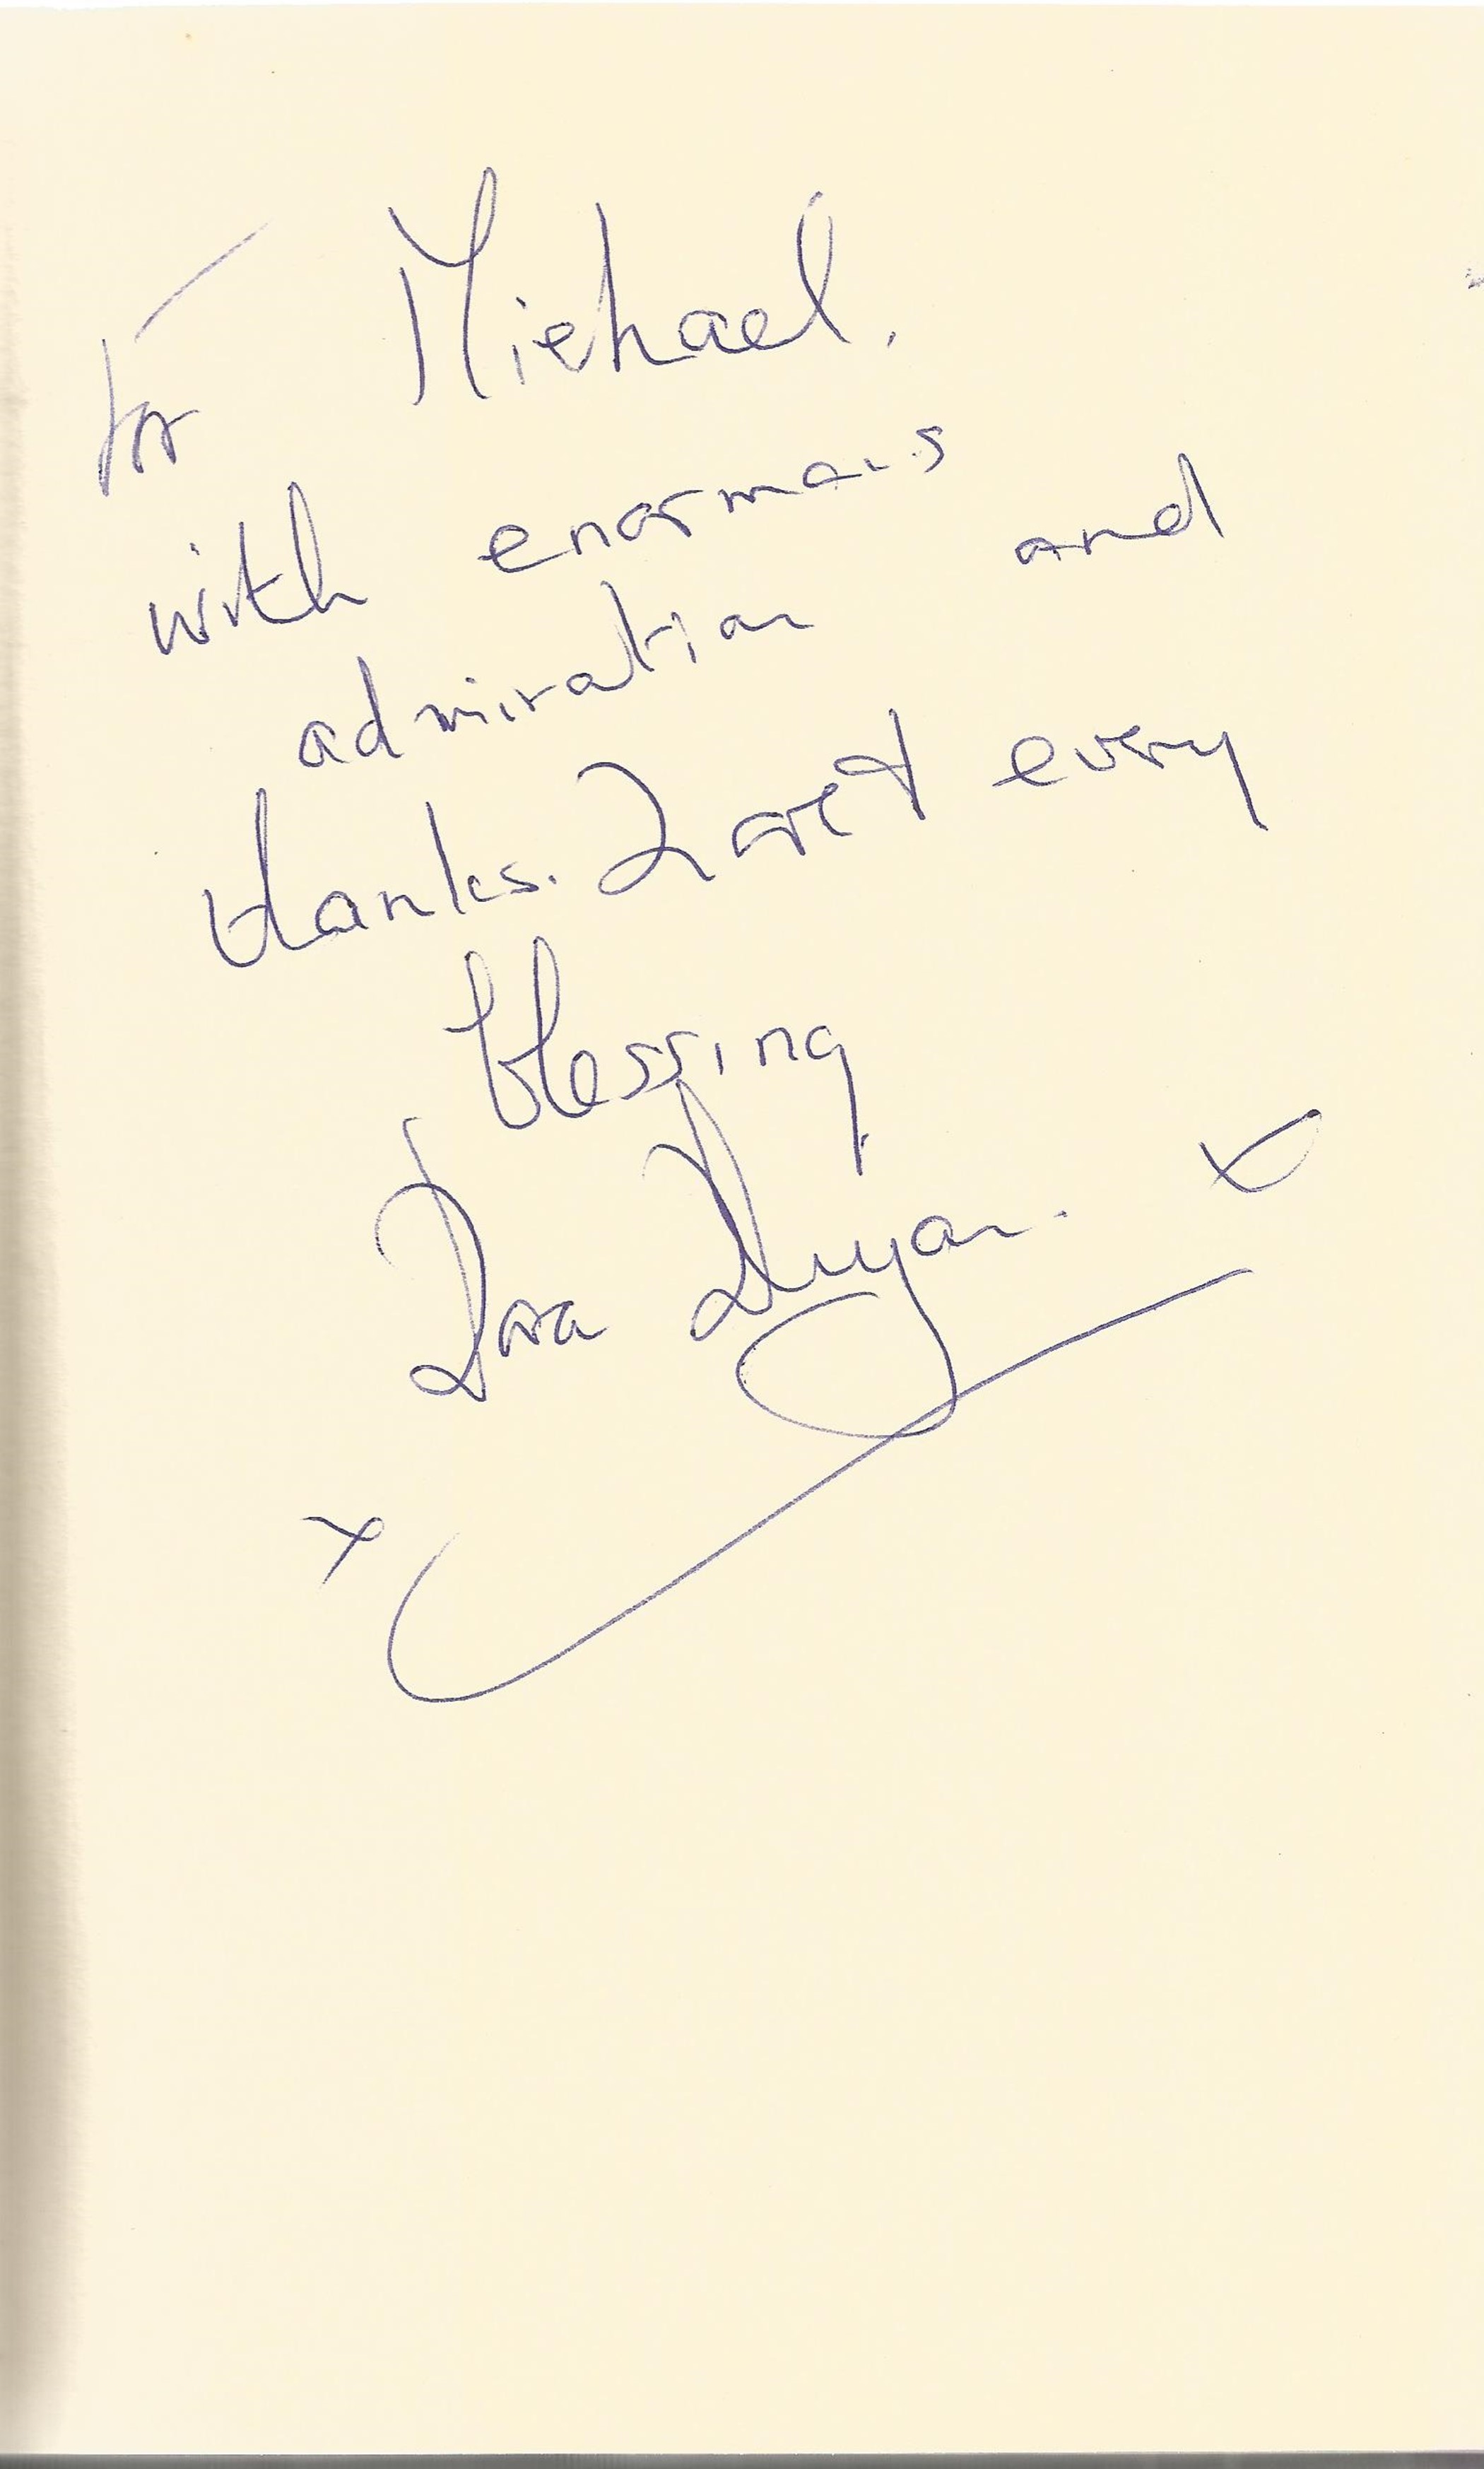 For Michael.
with enormous
admiration and
thanks. Love & every
blessing
Dora Bryan. x
x